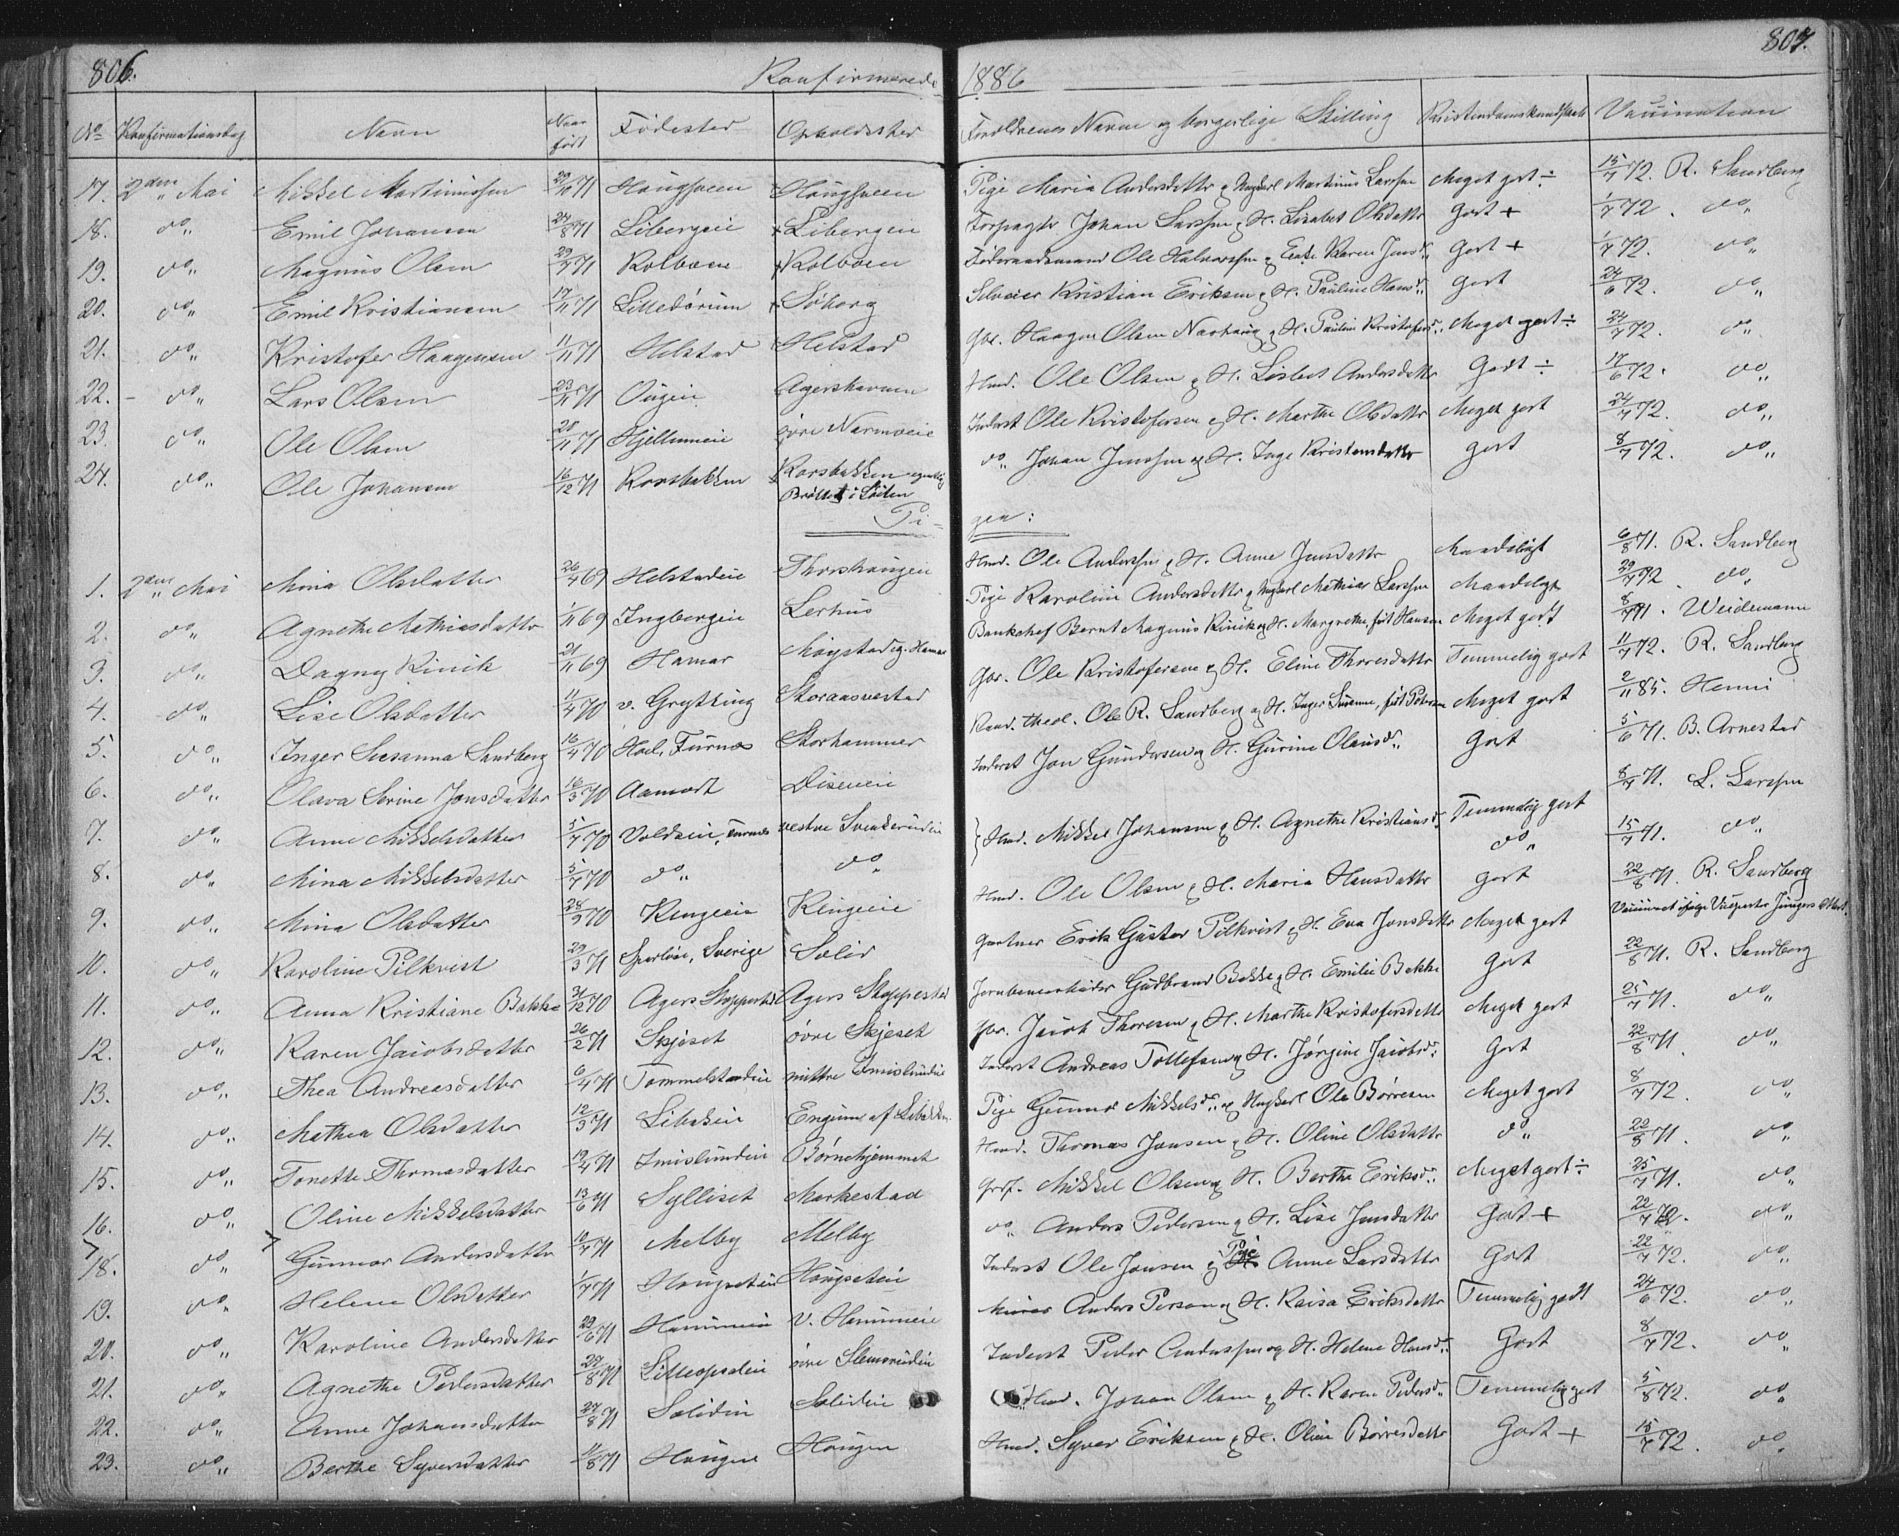 806.
Konfirmerede
1886
807.
No Konfirmationsdag Navn Naar født Fødested Opholdssted Forældrenes Navne og borgerlige Stilling Kristendomskundskab Vaccination
17. 2den Mai Mikkel Martinussen 29/11 71 Haugsveen Haugsveen Pige Maria Andersdatter og Ungkarl Martinus Larssen Meget godt ÷ 15/7 72. R. Sandberg
18. do„ Emil Johansen 24/8 71 Libergeie Libergeie Forpagter Johan Larssen og H. Lisabet Olsdatter Godt + 1/7 72. do„
19. do„ Magnus Olsen 29/7 71 Kolboen Kolboen Føderaadsmand Ole Halvorssen og Enke Karen Jensd„ Godt + 1/7 72. do„
20. do„ Emil Kristiansen 17/11 71 Lilledørum Soberg Selveier Kristian Eriksen og H. Pauline Hansd„ Godt 24/6 72. do„
21. do„ Kristofer Haagensen 11/11 71 Helstad Helstad Gbr. Haagen Olsen og H. Pauline Kristofersd„ Meget godt ÷ 24/7 72. do„
22. – do„ Lars Olsen 23/11 71 Ougeie Agershavnen Husd. Ole Olsen og H. Lisbet Andersdatter Godt ÷ 17/6 72. do„
23. do„ Ole Olsen 28/11 71 Hjellumeie øvre Narmoeie Inderst Ole Kristofersen og H. Marthe Olsdatter Meget godt 24/7 72. do„
24. do„ Ole Johansen 16/12 71 Korsbakken Korsbakken egentlig Brøttet i Løiten do„ Johan Jenssen og H. Inge Kristensdatter Godt 8/7 72. do„
Pi-
gen:
1. 2den Mai Mina Olsdatter 26/4 69 Helstadeie Thorshaugeie Husd. Ole Anderssen og H. Anne Jensdatter Maadeligt 6/8 71. R. Sandberg
2. do„ Agnethe Mathiasdatter 1/11 69 Ingbergeie Lerhus Pige Karoline Andersdatter og Ungkarl Mathias Larssen Maadeligt 29/7 72. do„
3. do„ Dagny Kinck 21/11 69 Hamar Møystad ig. Hamar Bankchef Bernt Magnus Kinck og H. Margrethe, født Hansen Meget godt 8/7 71. Weidemann
4. do„ Lise Olsdatter 11/4 70 v. Grytting Storaasvestad Gbr. Ole Kristofersen og H. Eline Thoresdatter Temmelig godt 11/7 72. R. Sandberg
5. do„ Inger Susanna Sandberg 16/4 70 Hoel, Furnes Storhammer Kand. theol. Ole R. Sandberg og H. Inger Susanne, født Petersen Meget godt 2/11 85. Henni
6. do„ Olava Serine Jonsdatter 16/3 70 Aamodt Diseneie Inderst Jon Gundersen og H. Gurine Olausd„ Godt 5/6 71. B. Arnestad
7. do„ Anne Mikkelsdatter 5/7 70 Voldseie, Furnes vestre Svenkerudeie } Husd. Mikkel Johansen og H. Agnethe Kristiansd„ Temmelig godt 8/7 71. L. Larssen
8. do„ Mina Mikkelsdatter 5/7 70 do„ do„ do„ 15/7 71. do„
9. do„ Mina Olsdatter 28/7 70 Kengeeie Kengeeie Husd. Ole Olsen og H. Maria Hansdatter Godt 22/8 71. R. Sandberg
10. do„ Karoline Pilkvist 29/3 71 Sparløse, Sverige Solør Gartner Erik Gustav Pilkvist og H. Eva Jonsdatter Meget godt
11. do„ Anna Kristiane Bakke 31/12 70 Agers Stoppested Agers Stoppested Jernbanearbeider Gudbrand Bakke og H. Emilie Bakke Godt 22/8 71. R. Sandberg
12. do„ Karen Jacobsdatter 26/2 71 Skjeset øvre Skjeset Gbr. Jacob Thoresen og H. Marthe Kristofersdatter Meget godt 25/7 71. do„
13. do„ Thea Andreasdatter 6/4 71 Tommelstadeie mittre Imislundeie Inderst Andreas Tollefsen og H. Jørgine Jacobsd„ Godt 22/8 71. do„
14. do„ Mathea Olsdatter 12/3 71 Libakeie Engum af Libakken Pige Gunnor Mikkelsd„ og Ungkarl Ole Børresen Meget godt 8/7 72. do„
15. do„ Tonette Thomasdatter 19/4 71 Imislundeie Børnehjemmet Husd. Thomas Jonsen og H. Oline Olsdatter do„ 22/8 71. do„
16. do„ Oline Mikkelsdatter 13/6 71 Sylliset Markestad Mikkel Olsen og H. Berthe Eriksd„ Meget godt ÷ 25/7 71. do„
7/18. do„ Gunnor Andersdatter 10/7 71 Melby Melby do„ Anders Pedersen og H. Lise Jensdatter Godt + 22/7 72. do„
19. do„ Helene Olsdatter 1/7 71 Haugseteie Haugseteie Inderst Ole Jonsen og Pige Anne Larsdatter Godt 22/7 72. do„
20. do„ Karoline Andersdatter 29/6 71 Hommeie V. Hommeie Anders Person og H. Kaisa Eriksdatter Temmelig godt 24/6 72. do„
21. do„ Agnethe Pedersdatter 27/8 71 Lilleopsaleie øvre Slemsrudeie Inderst Peder Anderssen og H. Helene Hansd„ Godt 8/7 72. do„
22. do„ Anne Johansdatter 27/8 71 Solideie Solideie Husd. Johan Olsen og H. Karen Pedersd„ Temmelig godt 5/8 72. do„
23. do„ Berthe Syversdatter 11/8 71 Haugen Haugen Husd. Syver Eriksen og H. Oline Børresdatter Godt + 15/7 72. do„